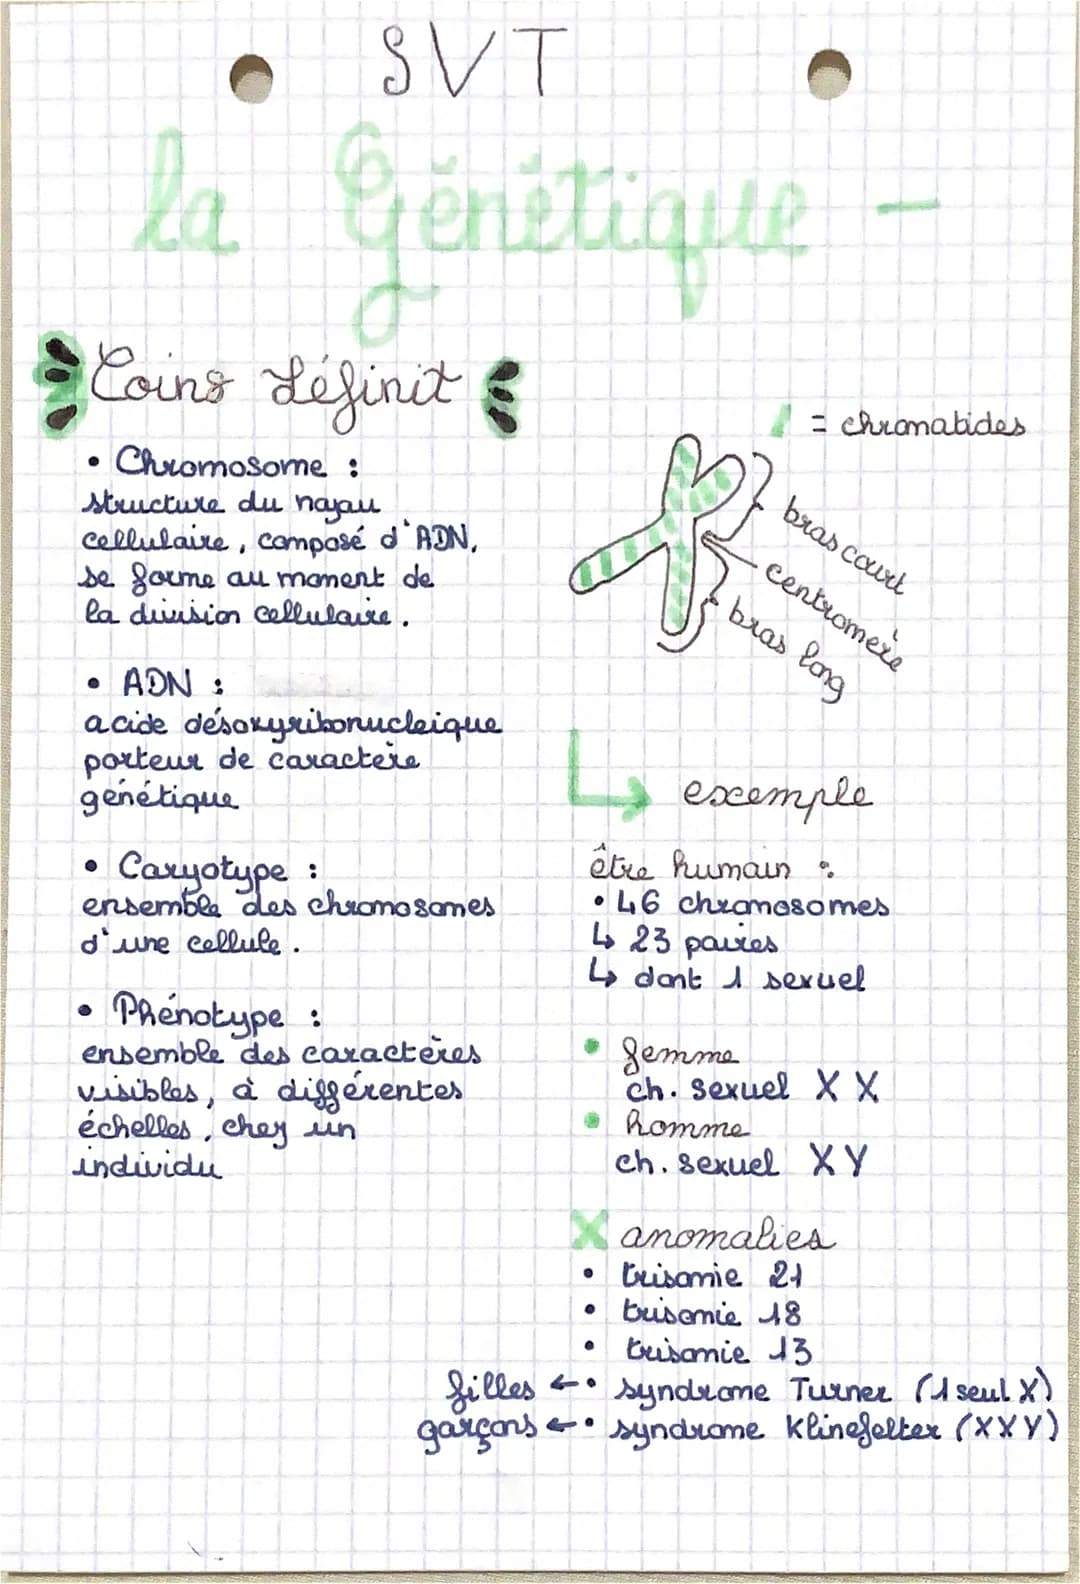 SVT
la Génétique -
Coins définit
• Chromosome :
structure du noyau
cellulaire, composé d'ADN,
se forme au moment de
la division cellulaire.
• ADN :
acide désoxyribonucleique
porteur de caractère
génétique
• Caryotype :
ensemble des chromosomes
d'une cellule.
• Phénotype :
ensemble des caractères
visibles, à différentes
échelles, chez un
individu
= chromatides
bras court
centromère
bras long
exemple
être humain :
• 46 chromosomes
↳ 23 paires
↳ dont 1 sexuel
• femme
ch. sexuel X X
• homme
ch. sexuel X Y
X anomalies
• trisomie 21
• trisomie 18
• trisomie 13
filles ← • syndrome Turner (1 seul X)
garçons ← • syndrome Klinefelter (XXY)